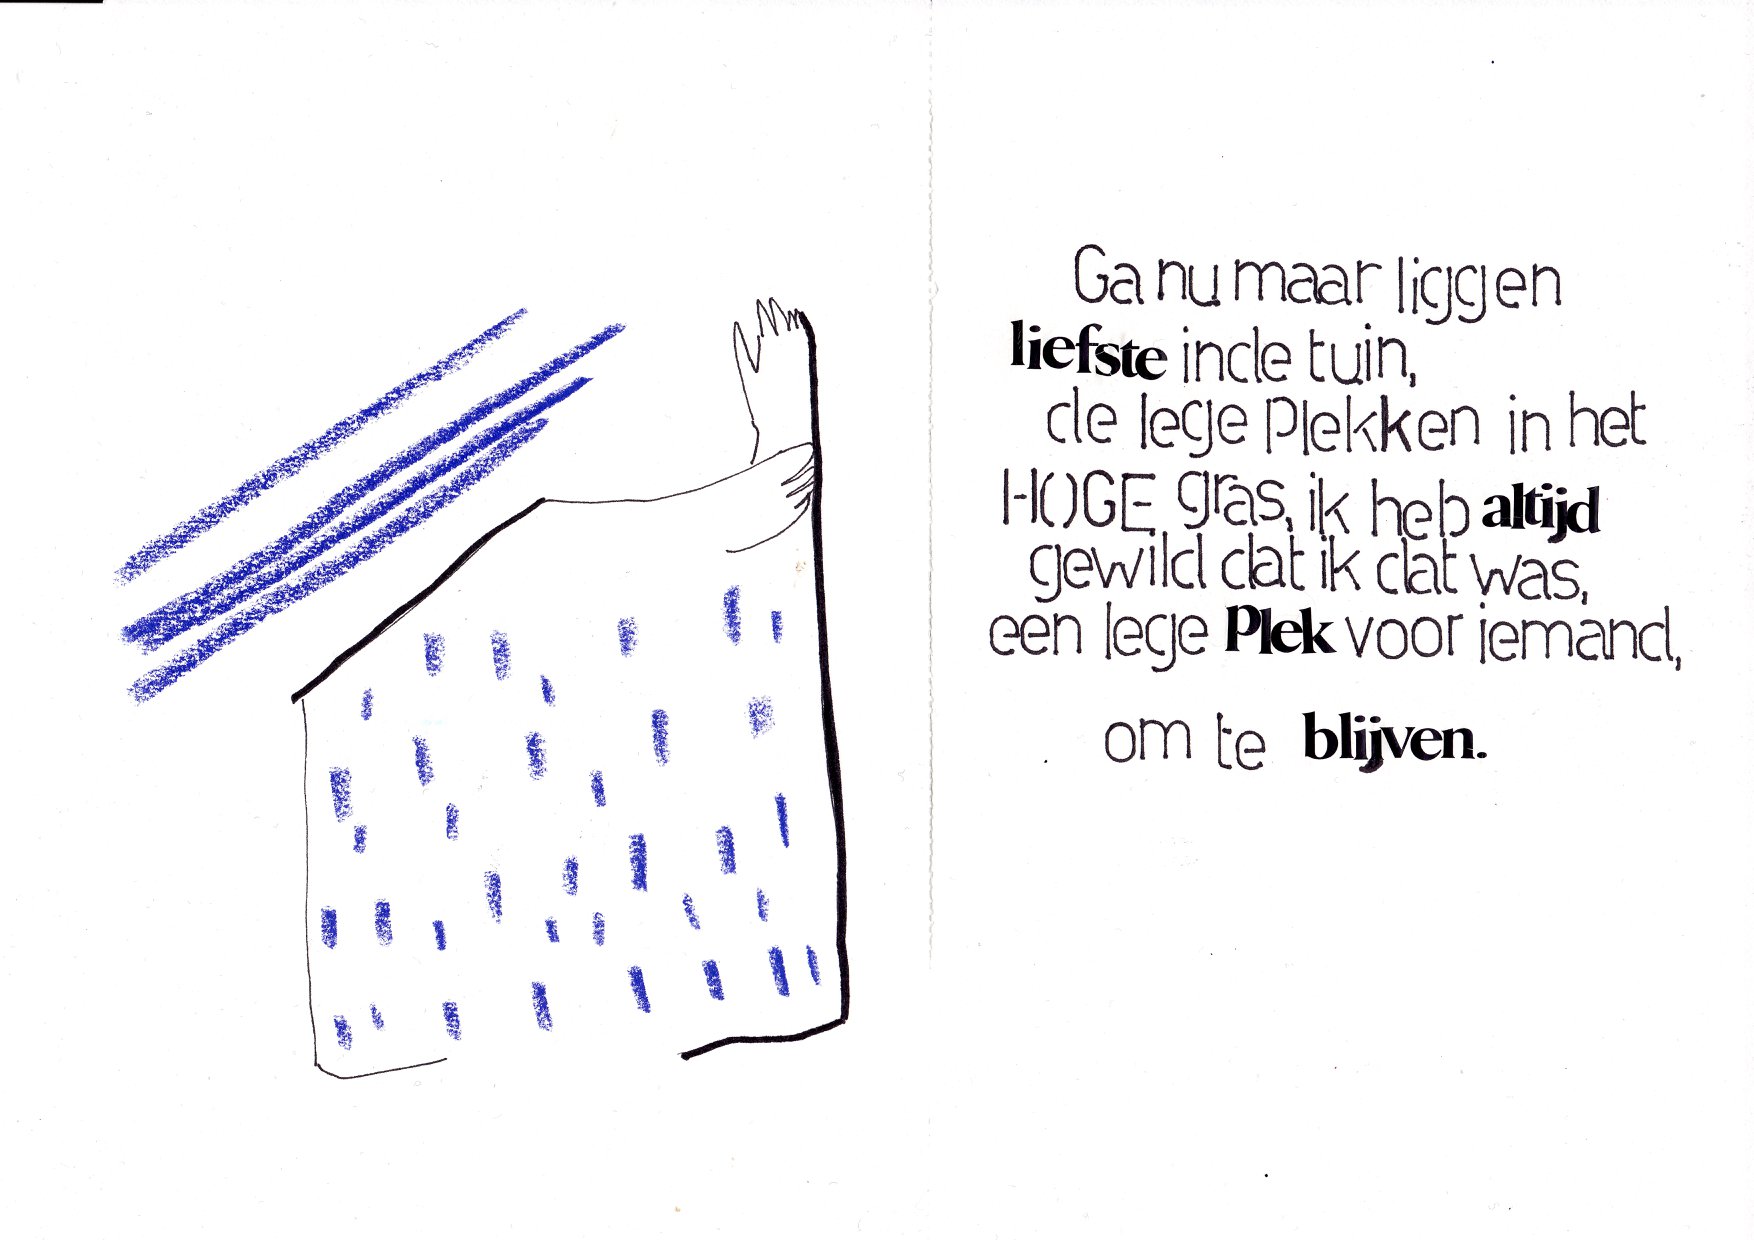 Ga nu maar liggen
liefste in de tuin,
de lege plekken in het
HOGE gras, ik heb altijd
gewild dat ik dat was,
een lege Plek voor iemand,
om te blijven.